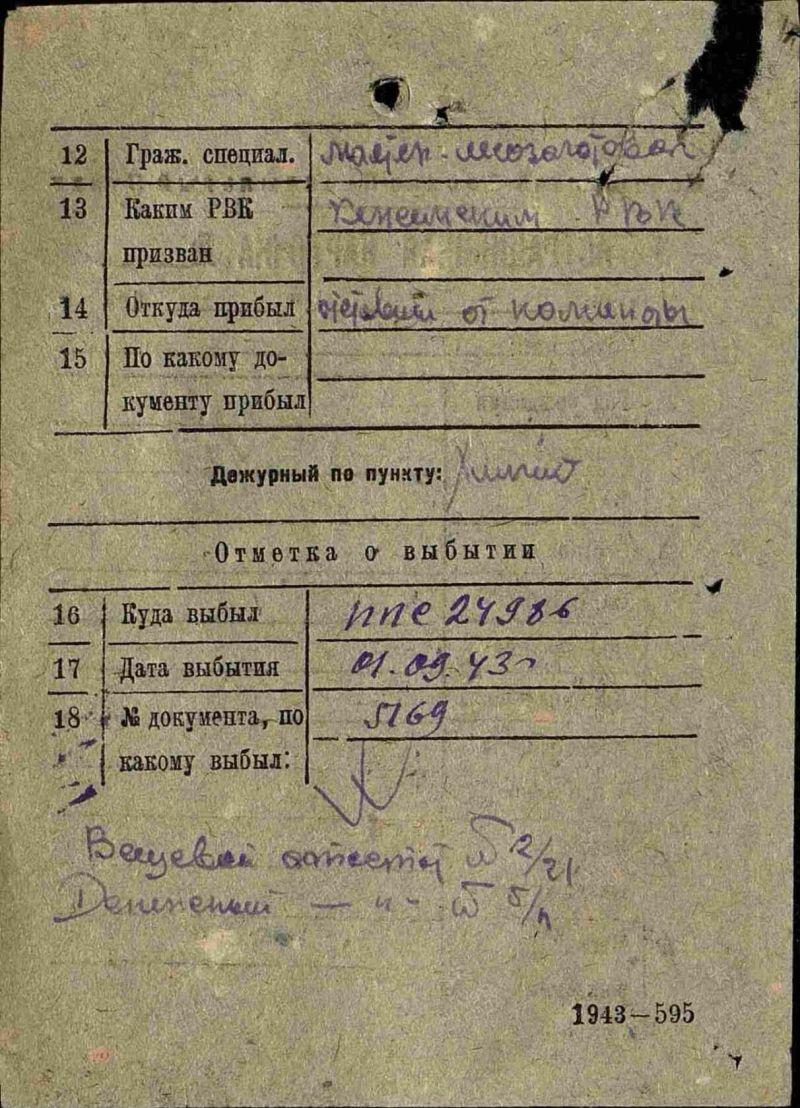 12 Граж. специал. мастер-лесозаготовки
13 Каким РВК РВК
призван
14 Откуда прибыл отставший от команды
15 По какому до-
кументу прибыл
Дежурный по пункту:
Отметка о выбытии
16 Куда выбыл ппс 24986
17 Дата выбытия 01.09.43
18 № документа, по 5169
какому выбыл:
Вещевой аттестат № 2/21
Денежный — „ — №
1943—595